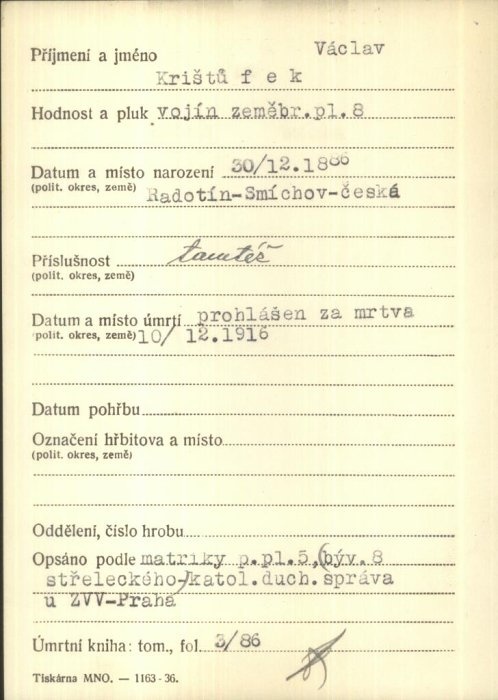 Příjmení a jméno Václav
Krištůfek
Hodnost a pluk vojín zeměbr.pl.8
Datum a místo narození 30/12.1886
(polit. okres, země) Radotín-Smíchov-česká
Příslušnost tamtéž
(polit. okres, země)
Datum a místo úmrtí prohlášen za mrtva
polit. okres, země) 10/12.1916
Datum pohřbu
Označení hřbitova a místo
(polit. okres, země)
Oddělení, číslo hrobu
Opsáno podle matriky p.pl.5,(býv.8
střeleckého-)katol.duch.správa
u ZVV-Praha
Úmrtní kniha: tom., fol. 3/86
Tiskárna MNO. — 1163-36.